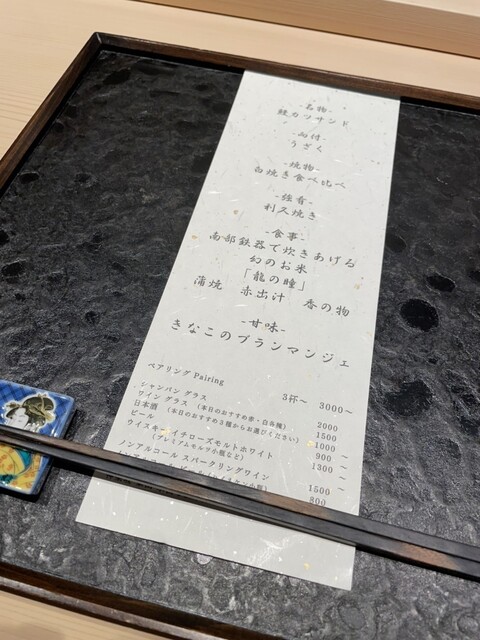 -名物-
鰻カツサンド
-向付-
うざく
-焼物-
白焼き食べ比べ
-強肴-
利久焼き
-食事-
南部鉄器で炊きあげる
幻のお米
「龍の瞳」
蒲焼 赤出汁 香の物
-甘味-
きなこのブランマンジェ
ペアリング Pairing 3杯~ 3000~
シャンパン グラス 2000
ワイン グラス (本日のおすすめ赤・白各種) 1500
日本酒 (本日のおすすめ3種からお選びください) 1000~
ビール 900~
ウイスキー イチローズモルトホワイト 1300~
(プレミアムモルツ小瓶など)
ノンアルコール スパークリングワイン 1500
800